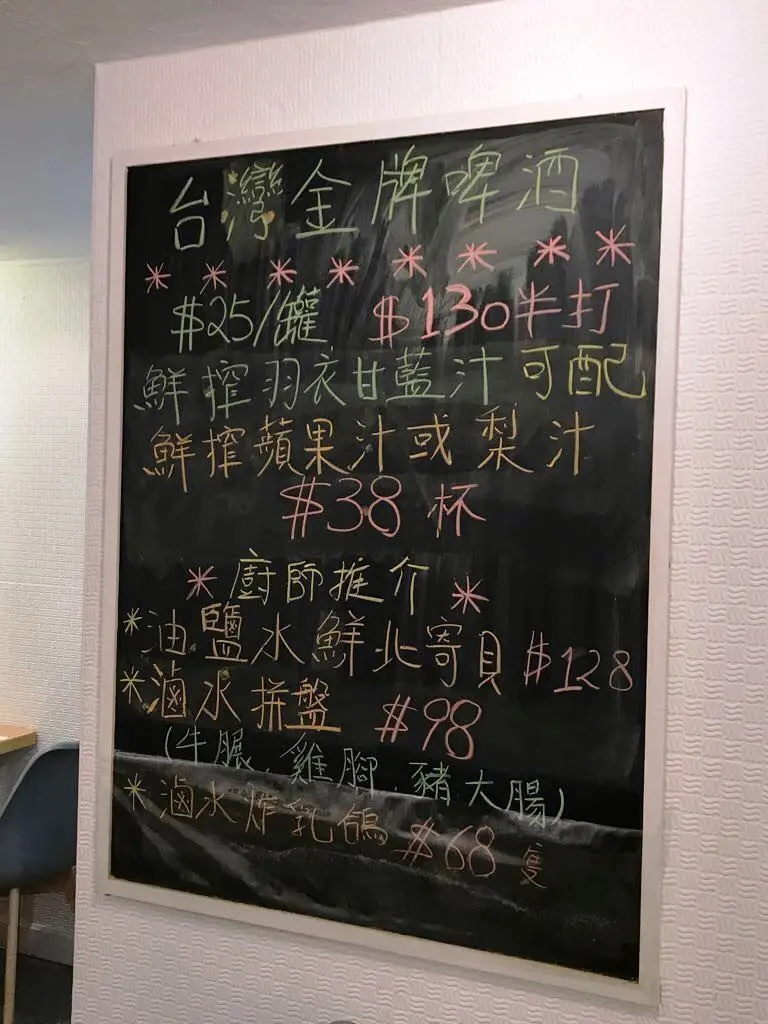 台灣金牌啤酒
* * * * * * * *
$25/罐 $130半打
鮮搾羽衣甘藍汁可配
鮮搾蘋果汁或梨汁
$38杯
* 廚師推介 *
*油鹽水鮮北寄貝 $128
*滷水拼盤 $98
(牛𦟌、雞腳、豬大腸)
*滷水炸乳鴿 $68隻